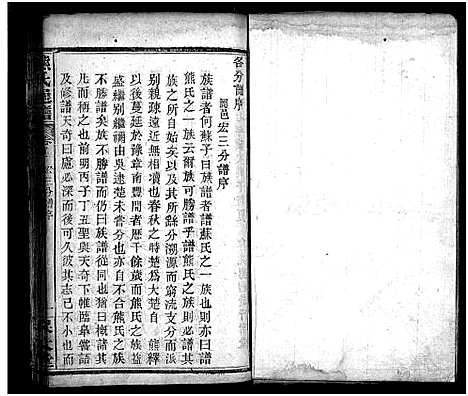 各分譜序
邑宏三分譜序
族譜者何蘇子曰族譜者譜蘇氏之族也則亦曰譜
熊氏之一族云爾族可勝譜乎譜熊氏之族則必譜
族之所自始矣以及其所縣分溯源而窮流支分而派
別親疎遠近無相凟也春秋之時楚為大楚自 熊繹
以後蔓延於豫章南豐間者歷千餘歲而熊氏之族益
盛繼別繼禰由吳逮楚未嘗分也亦自合熊氏之族
不勝譜矣而仍曰族譜從同也猶曰概譜其
月而稱之也前明丙子丁丑聖與天奇下帷臨皐嘗語
及修譜天奇曰慮必深而後可久彼其志已不小也而